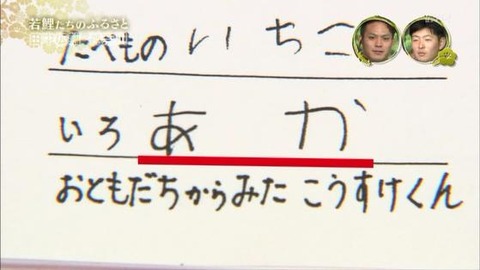 若鯉たちのふるさと
たべもの いちご
いろ あか
おともだちからみた こうすけくん